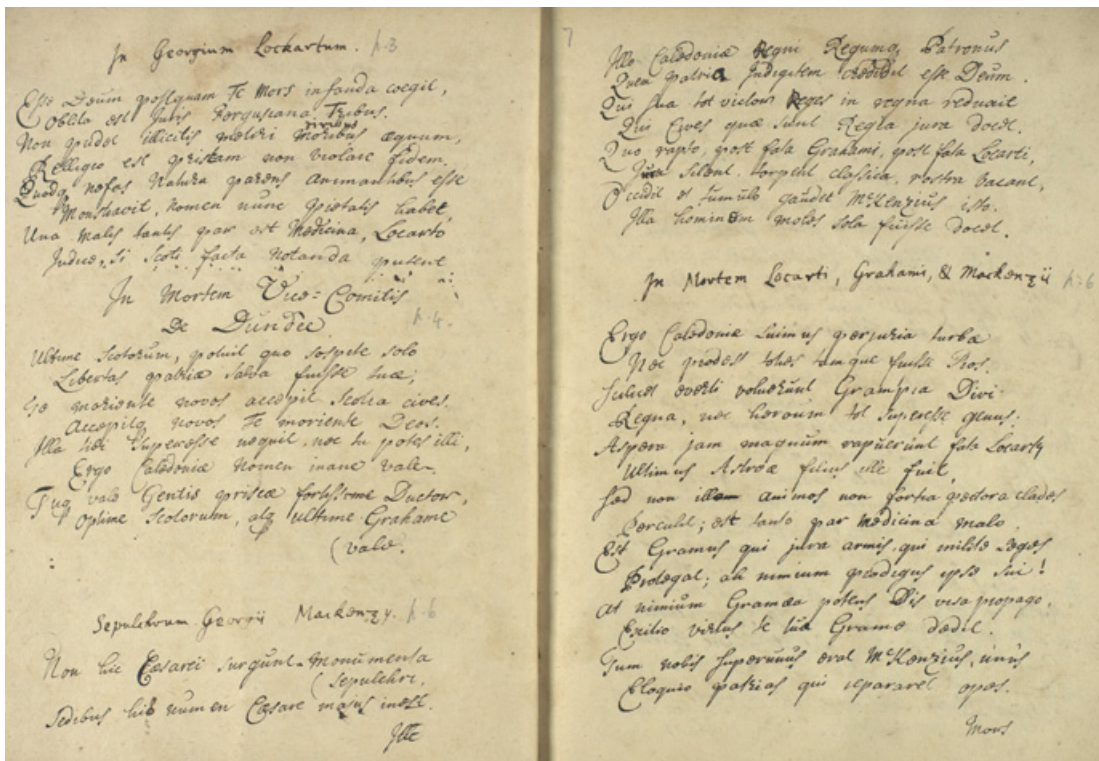 In Georgium Lockartum. p. 3
Esse Deum postquam Te Mors infanda coegit,
Oblita est Juris Fergusiana Tribus.
Non pudet illicitis metiri moribus æquum,
Relligio est priscam non violare fidem.
Quodq nefas Natura parens animantibus esse
Monstravit, nomen nunc pietatis habet,
Una malis tantis par est Medicina, Locarto
Judice, si Scoti facta notanda putent
In Mortem Vice=Comitis
De Dundee p. 4.
Ultime Scotorum, potuit quo sospite solo
Libertas patriæ salva fuisse tuæ;
Te moriente novos accepit Scotia cives.
Accepitq novos Te moriente Deos.
Illa tibi superesse nequit, nec tu potes illi,
Ergo Caledoniæ Nomen inane vale.
Tuq vale Gentis priscæ fortissime Ductor,
Optime Scotorum, atq ultime Grahame
(vale.
Sepulchrum Georgii Mackenzy. p. 6
Non hic Cæsarei surgunt Monumenta
(Sepulchri.
Sedibus his numen Cæsare majus inest.
Ille
7
Ille Caledoniæ Regni Regumq Patronus
Quem patria Indigitem credidit esse Deum.
Qui sua tot victor Reges in regna reduxit
Qui Cives quæ sunt Regia jura docet.
Quo rapto, post fata Grahami, post fata Locarti,
Jura silent, torpent classica, rostra vacant,
Occidit et tumulo gaudet McKenzius isto.
Illa hominem moles sola fuisse docet.
In Mortem Locarti, Grahami, & Mackenzii p. 6
Ergo Caledoniæ luimus perjuria turba
Nec prodest toties tamque fuisse
Scilicet everti voluerunt Grampia Divi
Regna, nec heroum tot superesse genus.
Aspera jam magnum rapuerunt fata Locarty
Ultimus Astrææ filius ille fuit,
Sed non illam animos non fortia pectora clades
Perculit; est tanto par medicina malo.
Est Gramus qui jura armis, qui milite Leges
Protegat; ah nimium prodigus ipse sui!
At nimium Gramæa potens Dis visa propago,
Exitio virtus te tua Grame dedit.
Tum nobis superunus erat McKenzius, unus
Eloquio patrias qui repararet opes.
Mors